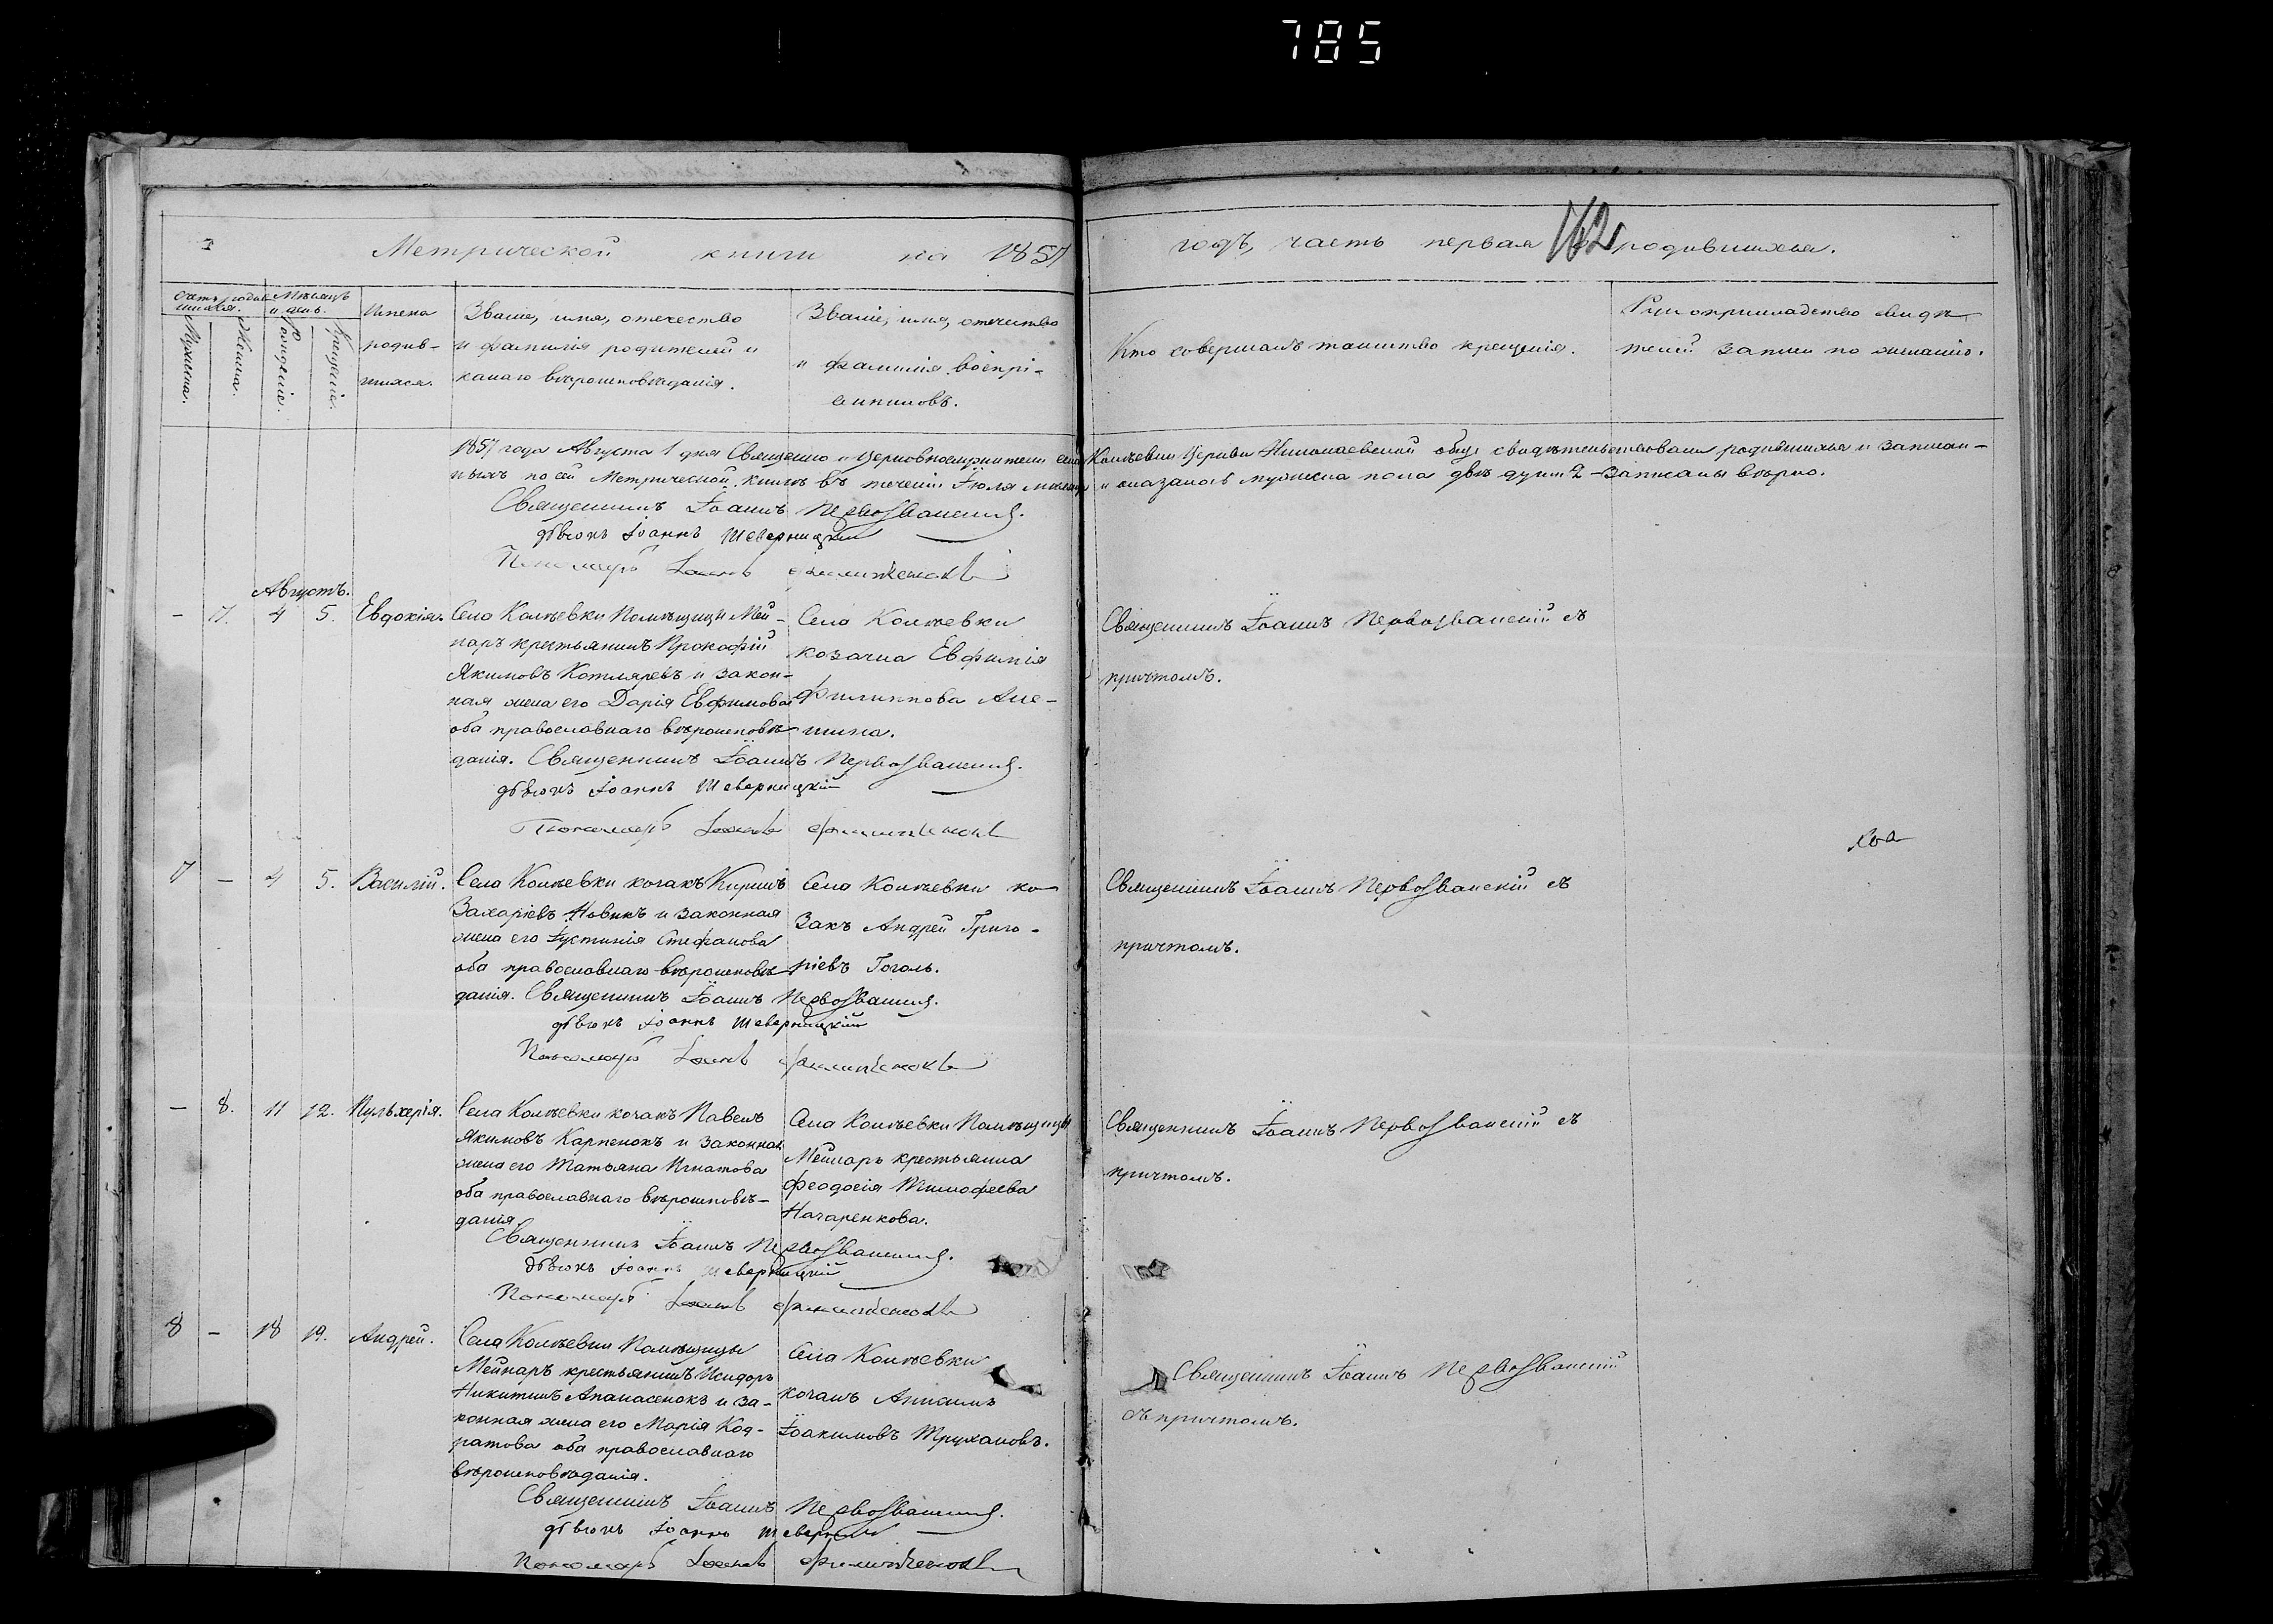 785
Метрической книги на 1857
годъ, часть первая о родившихся.
162
Счетъ родив-
шихся.
Мѣсяцъ
и день.
Мужеска.
Женска.
Рожденіе.
Крещеніе.
Имена
родив-
шихся.
Званіе, имя, отчество
и фамилія родителей и
какаго вѣроисповѣданія.
Званіе, имя, отчество
и фамилія воспрі-
емниковъ.
Кто совершалъ таинство крещенія.
Рукоприкладство свидѣ-
телей записи по желанію.
1857 года Августа 1 дня Священно и церковнослужители села Колѣевки Церкви Николаевской обще свидѣтельствовали родившихся и записан-
ныхъ по сей Метрической книгѣ въ теченіи Іюля мѣсяца и оказалось мужеска пола двѣ души 2 – записаны вѣрно.
Священникъ Іоаннъ Первозванскій.
дьячокъ Іоаннъ Шеверницкій
Пономарь Іоаннъ
Августъ.
– 7. 4 5. Евдокія.
Села Колѣевки Помѣщицы Мей-
наръ крестьянинъ Прокофій
Якимовъ Котляревъ и закон-
ная жена его Дарія Евфимова
оба православнаго вѣроисповѣ-
данія. Священникъ Іоаннъ Первозванскій.
дьячокъ Іоаннъ Шеверницкій
Пономарь Іоаннъ
Села Колѣевки
козачка Евфимія
Филиппова Але-
шина.
Священникъ Іоаннъ Первозванскій съ
причтомъ.
7 – 4 5. Василій.
Села Колѣевки козакъ Кирилъ
Захаріевъ Новикъ и законная
жена его Іустинія Стефанова
оба православнаго вѣроисповѣ-
данія. Священникъ Іоаннъ Первозванскій.
дьячокъ Іоаннъ Шеверницкій
Пономарь Іоаннъ
Села Колѣевки ко-
закъ Андрей Григо-
ріевъ Гоголь.
Священникъ Іоаннъ Первозванскій съ
причтомъ.
– 8. 11 12. Пульхерія.
Села Колѣевки козакъ Павелъ
Якимовъ Карпенокъ и законная
жена его Татьяна Игнатова
оба православнаго вѣроисповѣ-
данія.
Священникъ Іоаннъ Первозванскій.
дьячокъ Іоаннъ Шеверницкій
Пономарь Іоаннъ
Села Колѣевки Помѣщицы
Мейнаръ крестьянка
Феодосія Тимофеева
Назаренкова.
Священникъ Іоаннъ Первозванскій съ
причтомъ.
8 – 18 19. Андрей.
Села Колѣевки Помѣщицы
Мейнаръ крестьянинъ Исидоръ
Никитинъ Апанасенокъ и за-
конная жена его Марія Код-
ратова оба православнаго
вѣроисповѣданія.
Священникъ Іоаннъ Первозванскій.
дьячокъ Іоаннъ
Пономарь Іоаннъ
Села Колѣевки
козакъ Анисимъ
Іоакимовъ Трухановъ.
Священникъ Іоаннъ Первозванскій
съ причтомъ.